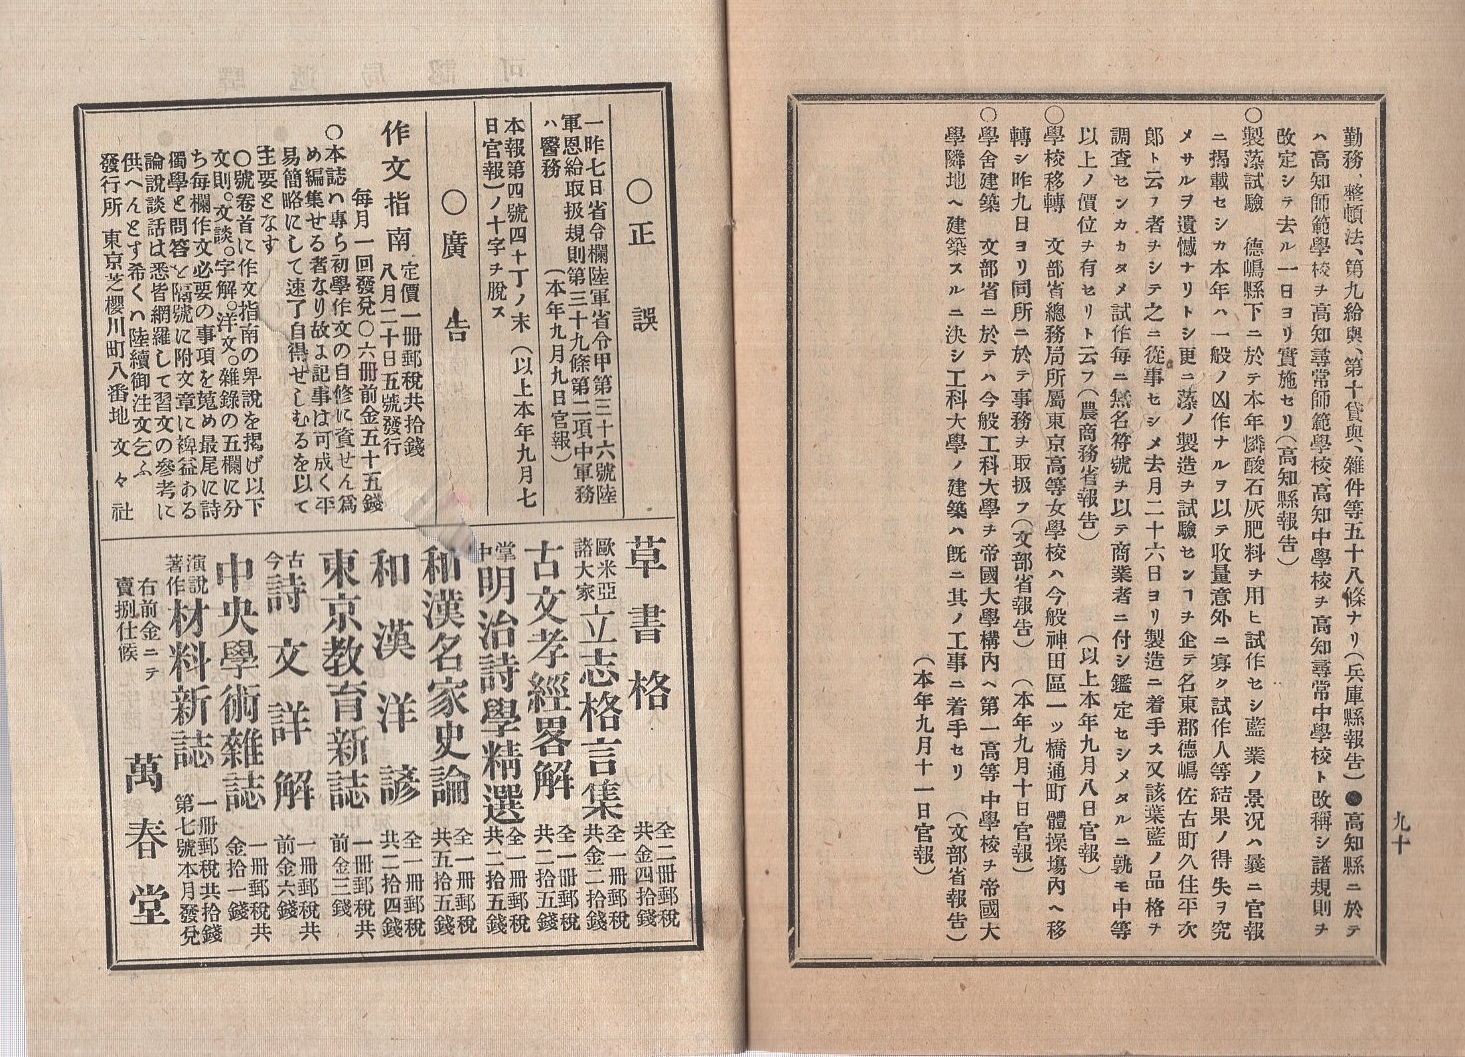 九十
勤務、整頓法、第九給與、第十貸與、雜件等五十八條ナリ(兵庫縣報告)●高知縣ニ於テ
ハ高知師範學校ヲ高知尋常師範學校、高知中學校ヲ高知尋常中學校ト改稱シ諸規則ヲ
改定シテ去ル一日ヨリ實施セリ(高知縣報告)
○製藍試驗 德嶋縣下ニ於テ本年燐酸石灰肥料ヲ用ヒ試作セシ藍業ノ景況ハ曩ニ官報
ニ揭載セシカ本年ハ一般ノ凶作ナルヲ以テ收量意外ニ寡ク試作人等結果ノ得失ヲ究
メサルヲ遺憾ナリトシ更ニ藍ノ製造ヲ試驗センヿヲ企テ名東郡德嶋佐古町久住平次
郎ト云フ者ヲシテ之ニ從事セシメ去月二十六日ヨリ製造ニ着手ス又該葉藍ノ品格ヲ
調査センカタメ試作每ニ無名符號ヲ以テ商業者ニ付シ鑑定セシメタルニ孰モ中等
以上ノ價位ヲ有セリト云フ(農商務省報告) (以上本年九月八日官報)
○學校移轉 文部省總務局所屬東京高等女學校ハ今般神田區一ッ橋通町體操塲內ヘ移
轉シ昨九日ヨリ同所ニ於テ事務ヲ取扱フ(文部省報告) (本年九月十日官報)
○學舍建築 文部省ニ於テハ今般工科大學ヲ帝國大學構內ヘ第一高等中學校ヲ帝國大
學隣地ヘ建築スルニ決シ工科大學ノ建築ハ既ニ其ノ工事ニ着手セリ (文部省報告)
(本年九月十一日官報)
○正誤
一昨七日省令欄陸軍省令甲第三十六號陸
軍恩給取扱規則第三十九條第二項中軍務
ハ醫務 (本年九月九日官報)
本報第四號四十丁ノ末(以上本年九月七
日官報)ノ十字ヲ脫ス
○廣告
作文指南 定價一册郵稅共拾錢
八月二十日五號發行
每月一回發兌○六册前金五十五錢
○本誌ハ專ら初學作文の自修に資せん爲
め編集せる者なり故ょ記事は可成く平
易簡略にして速了自得せしむるを以て
主要となす
○號卷首に作文指南の卑說を揭げ以下
文則。文談。字解。洋文。雜錄の五欄に分
ち每欄作文必要の事項を蒐め最尾に詩
獨學と問答と隔號に附文章に裨益ある
論說談話は悉皆網羅して習文の參考に
供へんとす希くハ陸續御注文乞ふ
發行所 東京芝櫻川町八番地 文々社
草書格 全二册郵稅共金四拾錢
歐米亞諸大家立志格言集 全一册郵稅共金二拾錢
古文孝經畧解 全一册郵稅共二拾五錢
掌中明治詩學精選 全一册郵稅共二拾五錢
和漢名家史論 全一册郵稅共五拾五錢
和漢洋諺 全一册郵稅共二拾四錢
東京教育新誌 一册郵稅共前金三錢
古今詩文詳解 一册郵稅共前金六錢
中央學術雜誌 一册郵稅共金拾一錢
演說著作材料新誌 一册郵稅共拾錢第七號本月發兌
右前金ニテ
賣捌仕候
萬春堂